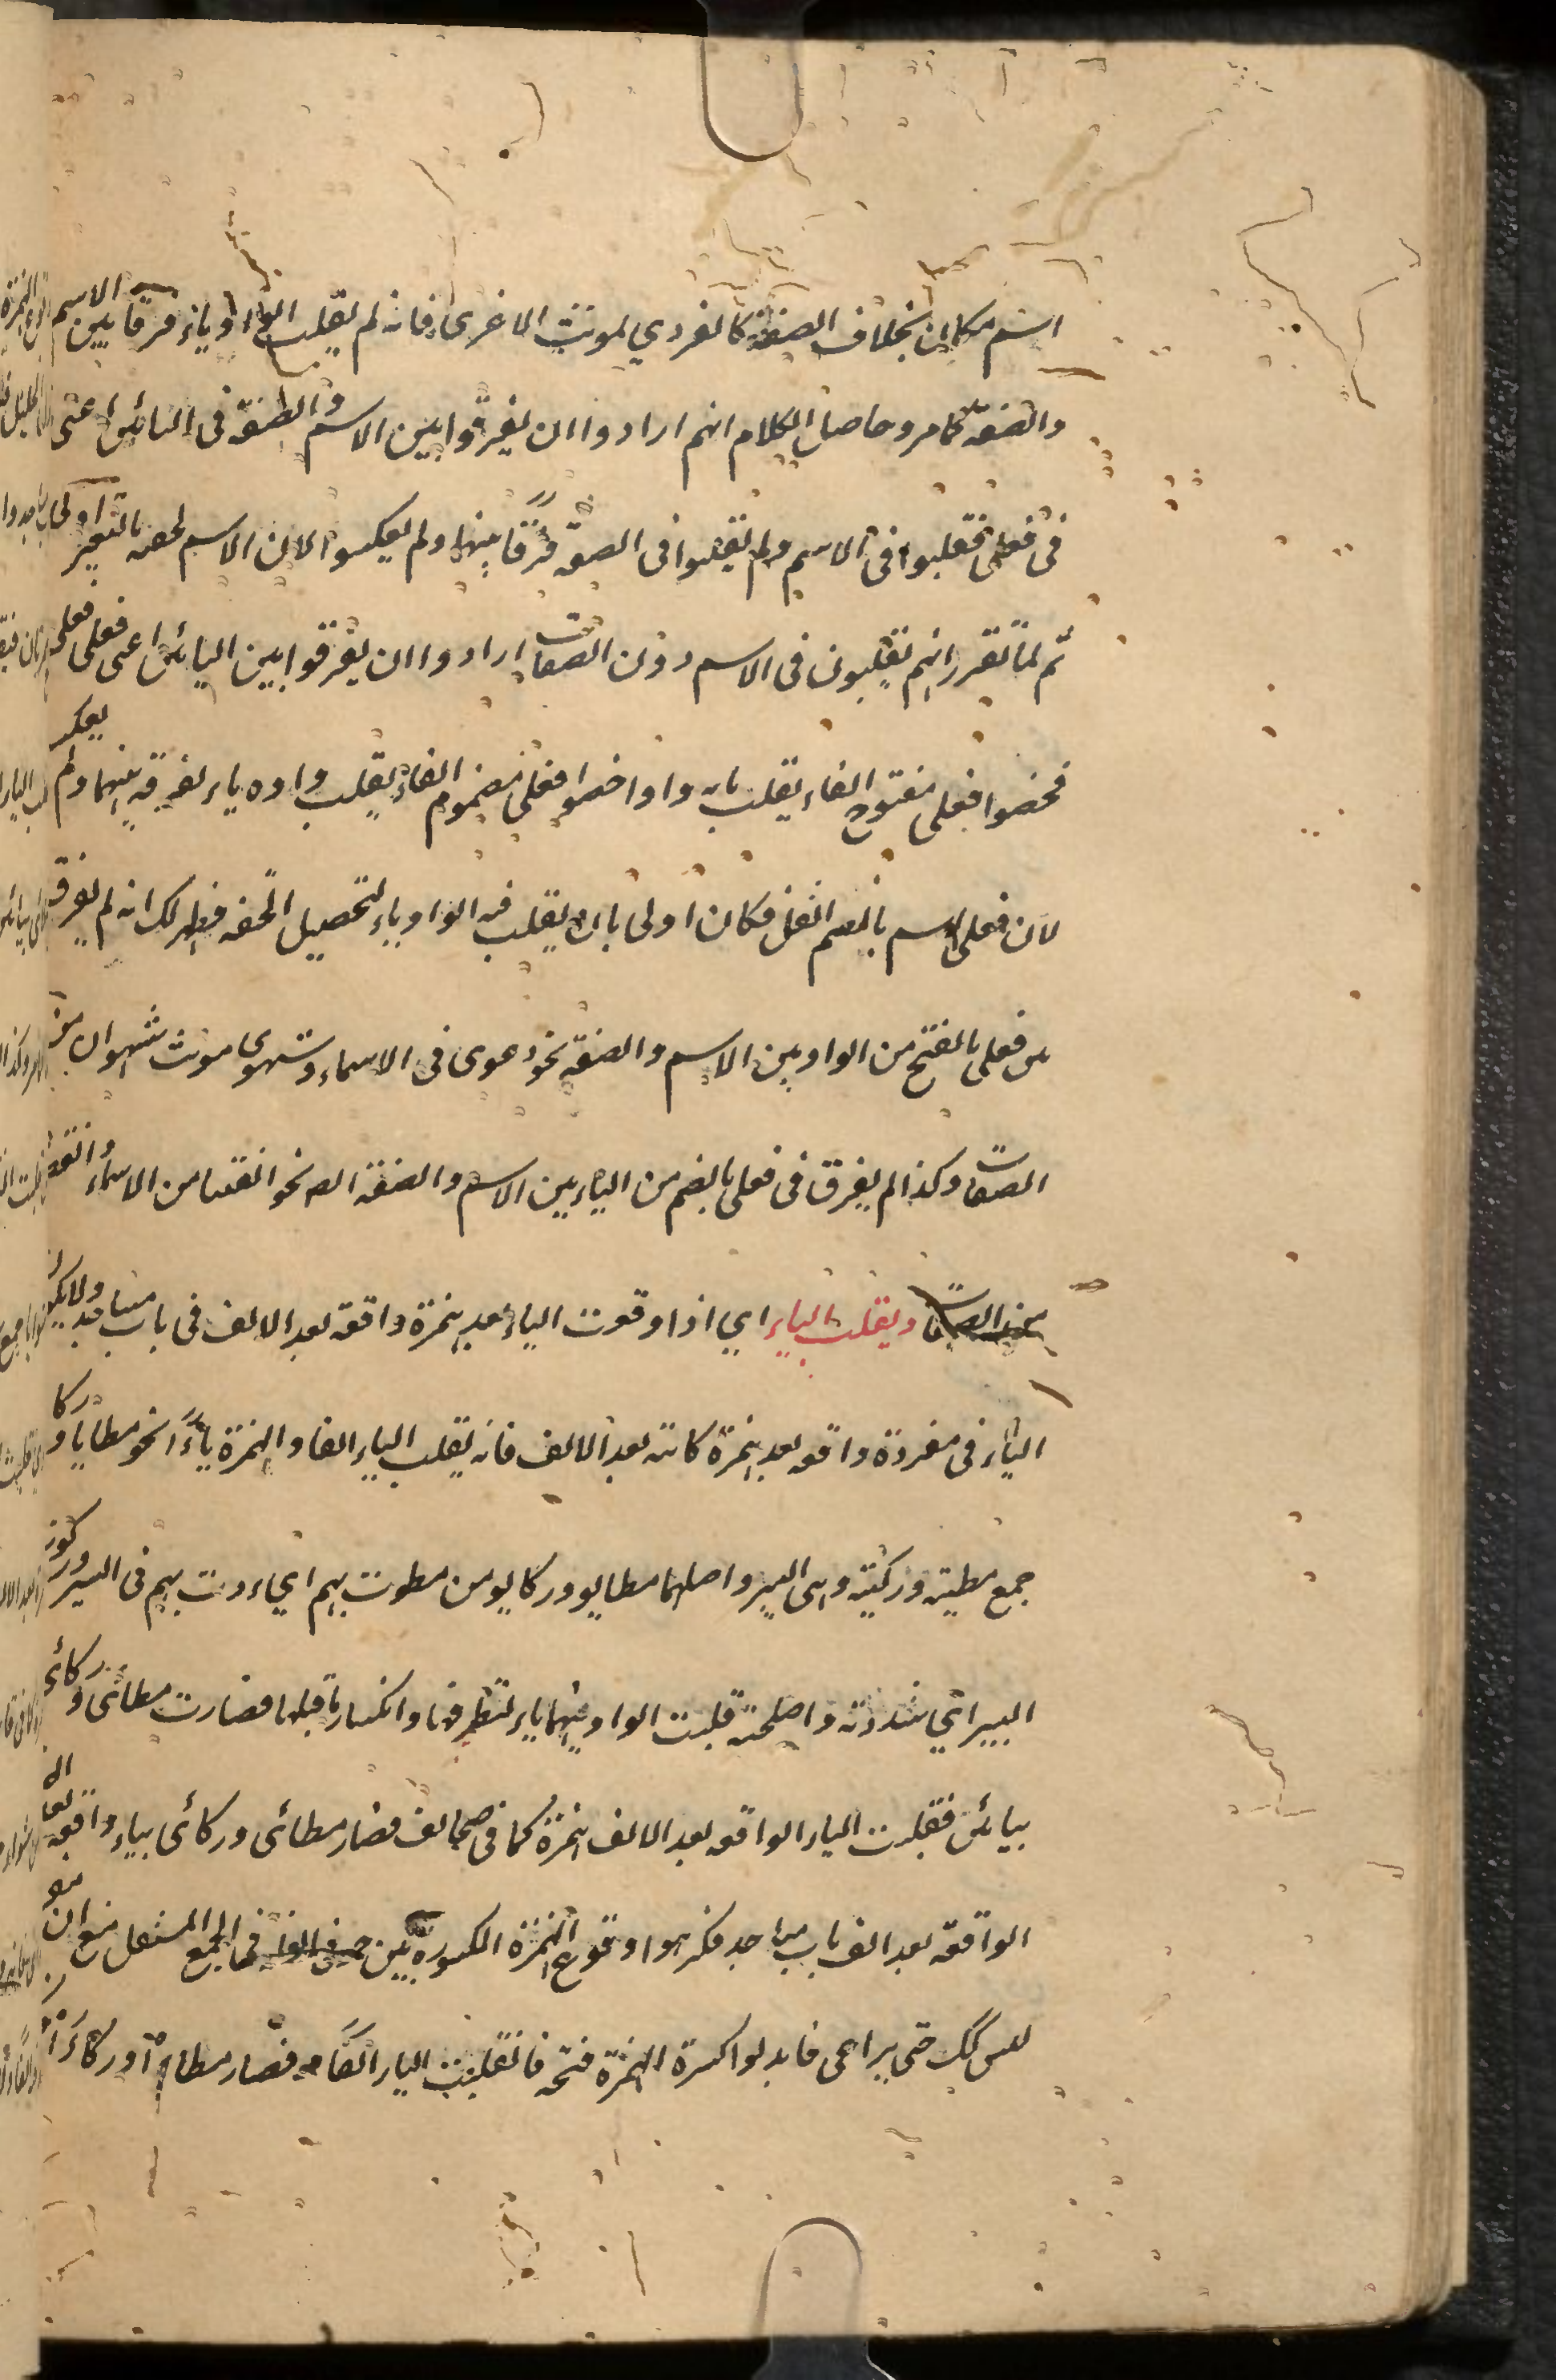 اسم مكان بخلاف الصفة كالغزوي لمونث الاغزى فانه لم يقلب الواو ياء فرقا بين الاسم
والصفة كما مر وحاصل الكلام انهم ارادوا ان يفرقوا بين الاسم والصفة في البائين اعنى
في فعلى فقلبوا في الاسم ولم يقلبوا في الصفة فرقًا بينهما ولم يعكسوا لان الاسم لخفته بالتغير اولى
ثم لما تقرر انهم يقلبون في الاسم دون الصفات ارادوا ان يفرقوا بين البائين اعنى فعلى فعلى
فخصوا فعلى مفتوح الفاء بقلب يائه واوا وخصوا فعلى مضموم الفاء بقلب واوه ياء تفرقة بينهما ولم يعكس
لان فعلى اسم بالضم اثقل فكان اولى بان يقلب فيه الواو ياء لتحصيل الخفة فظهر لك انه لم يفرق
من فعلى بالفتح من الواو بين الاسم والصفة نحو دعوى في الاسماء وشهوى مونث شهوان من
الصفات وكذا لم يفرق في فعلى بالضم من الياء بين الاسم والصفة نحو الفتيا من الاسماء و
ويقلب الياء اي اذا وقعت الياء بعد همزة واقعة بعد الالف في باب مساجد ولا يكون
الياء في مفردة واقعه بعد همزة كائنه بعد الالف فانه يقلب الياء الفا والهمزة ياءً نحو مطايا وركا
جمع مطية وركية وهى البير واصلهما مطايو وركايو من مطوت بهم اي مددت بهم في السير وركوت
البير اي شددته واصلحته قلبت الواو فيهما ياء لتطرفها وانكسار ما قبلها فصارت مطائى وركائى
بيائين فقلبت الياء الواقعه بعد الالف همزة كما في صحائف فصار مطائى وركائى بياء واقعه
الواقعة بعد الف باب مساجد فكرهوا وقوع الهمزة المكسورة بين في الجمع المستثقل مع ان
كك حتى يراعى فابدلوا كسرة الهمزة فتحة فانقلبت الياء الفًا فصار مطاءا وركاءا